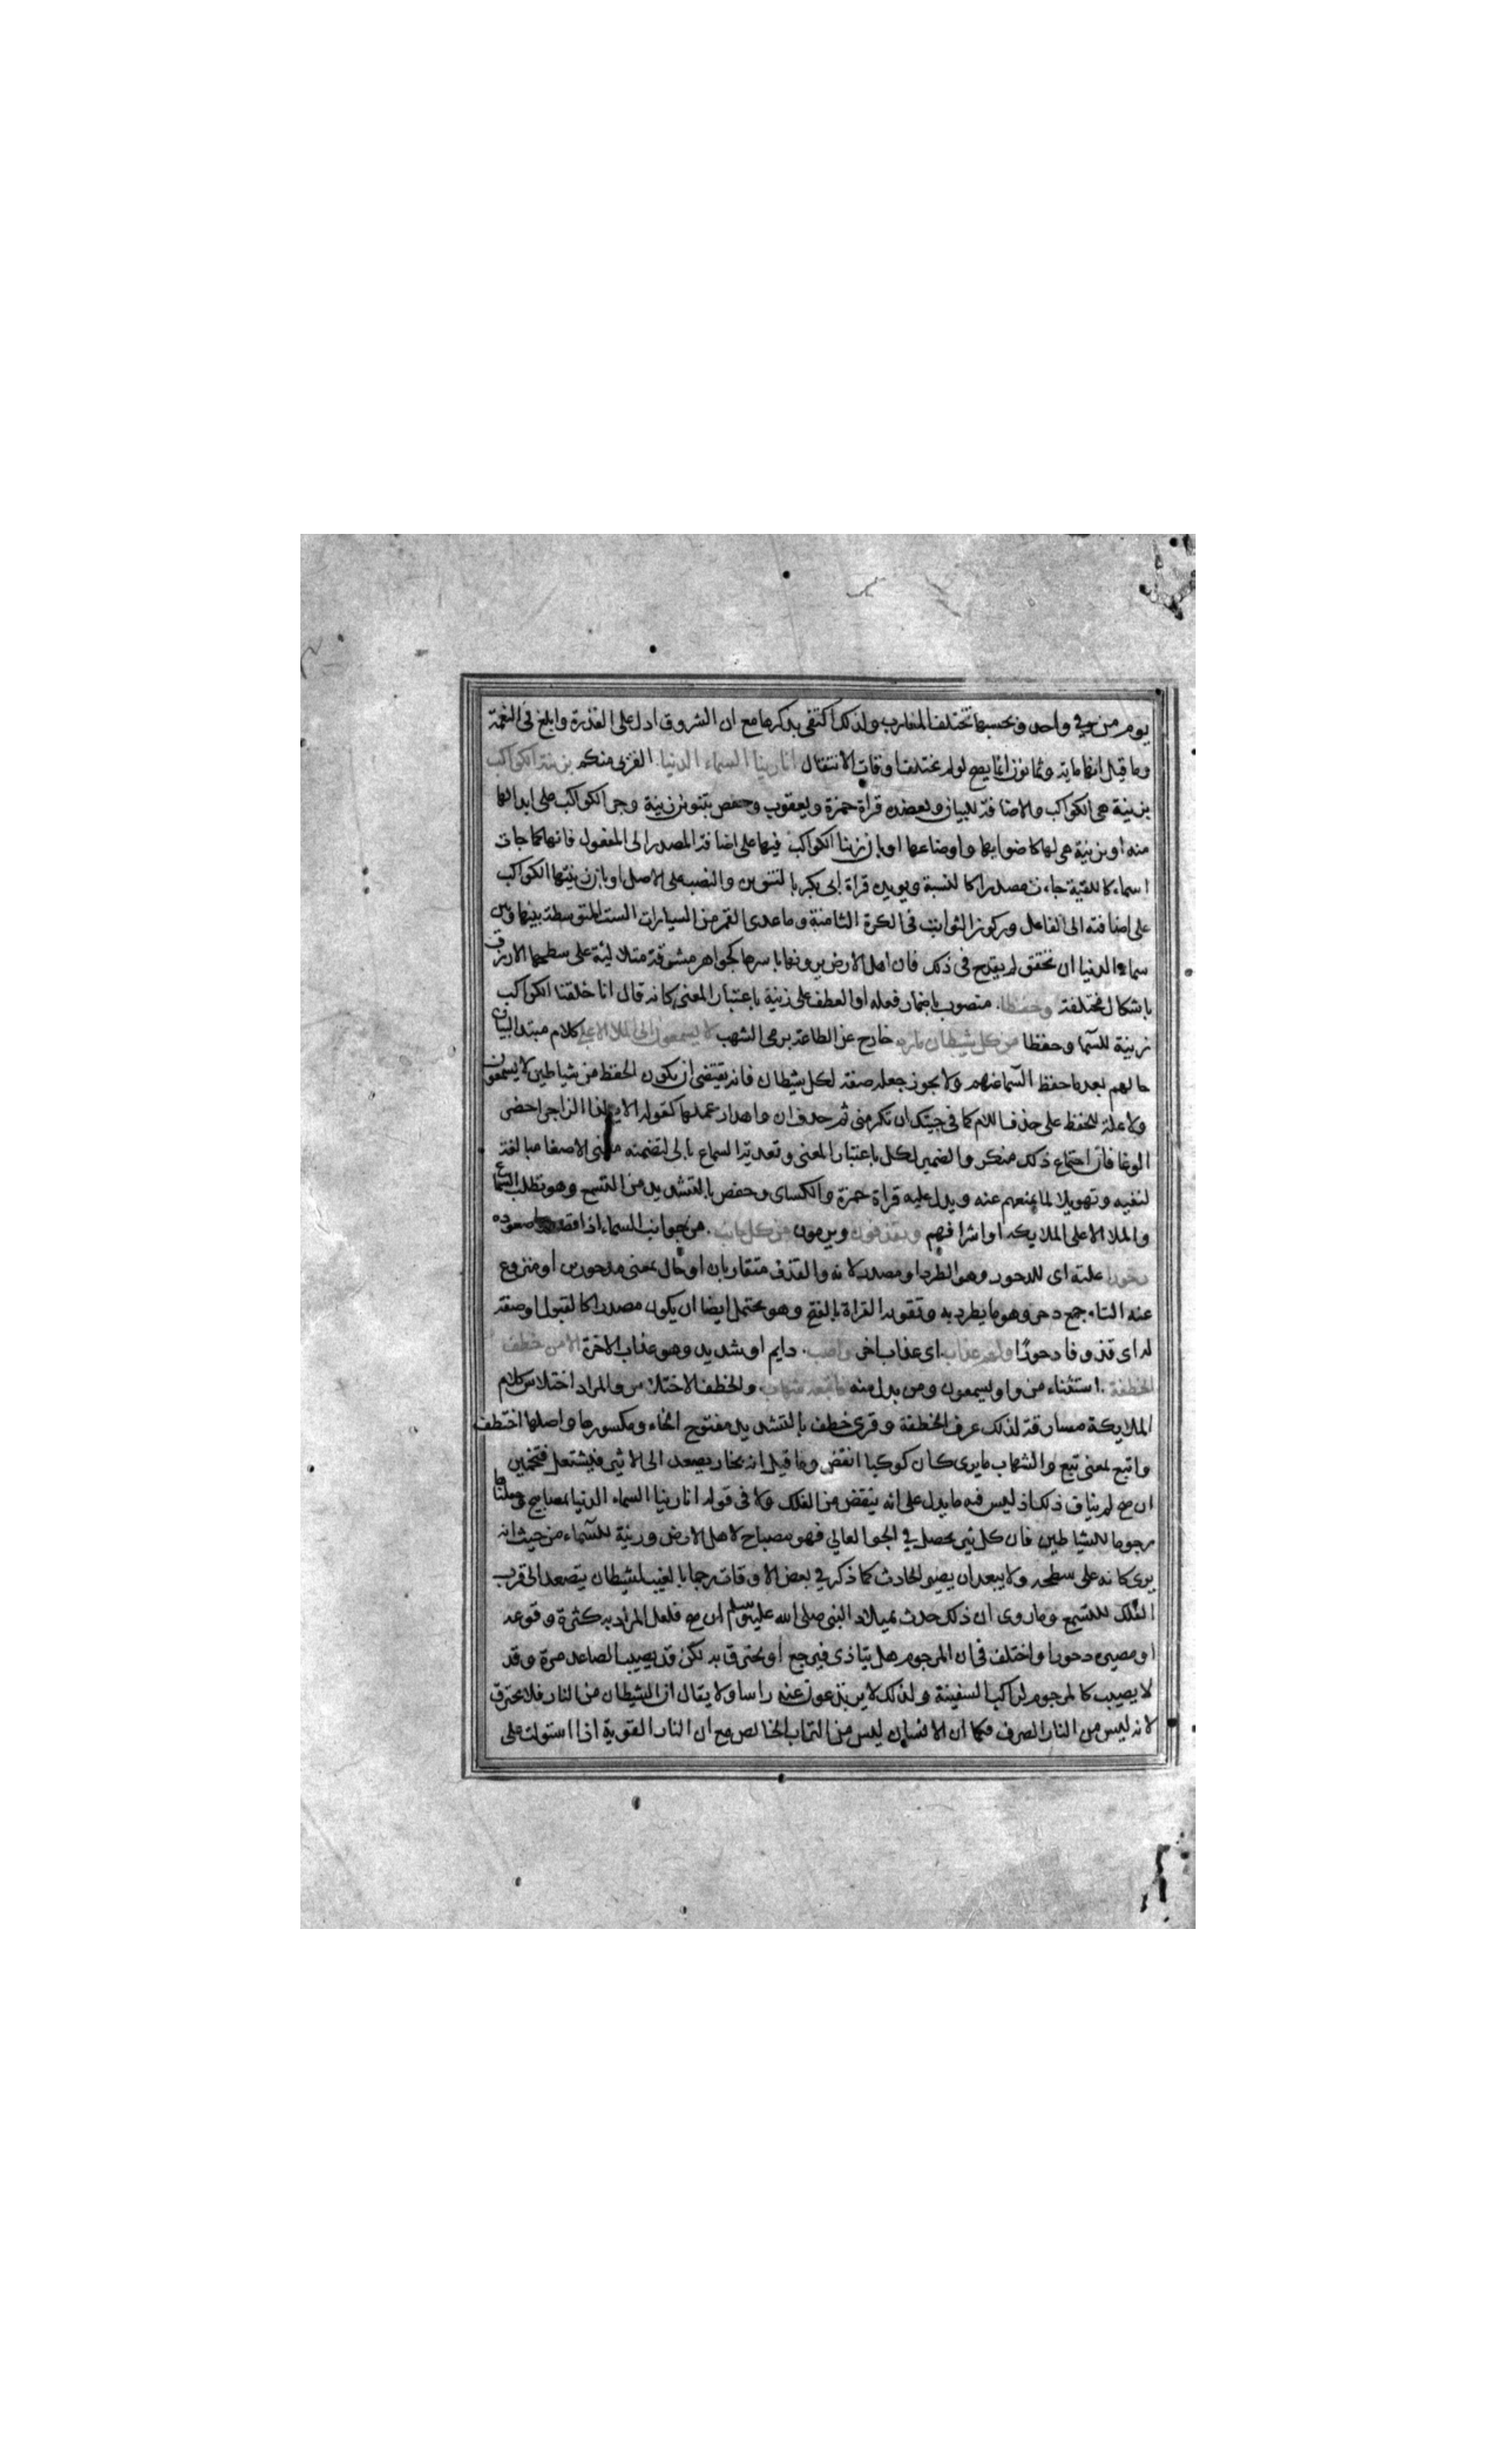 يوم من في واحد وبحسبها تختلف المغارب ولذلك اكتفى بذكرها مع ان الشروق ادل على القدرة وابلغ في النعمة
وما قيل انها ماية وثمانون انما يصح لو لم تختلف اوقات الانتقال انا زينا السماء الدنيا القربى منكم بزينة الكواكب
بزينة هي الكواكب والاضافة للبيان ويعضده قراة حمزة ويعقوب وحفص بتنوين زينة وجر الكواكب على ابدالها
منه او بزينة هي لها كاضوايها واوضاعها او بان زينا الكواكب فيها على اضافة المصدر الى المفعول فانها كما جات
اسماء كالليقة جاءت مصدرا كالنسبة ويويده قراة ابي بكر بالتنوين والنصب على الاصل او بان زينتها الكواكب
على اضافته الى الفاعل وركوز الثوابت في الكرة الثامنة وما عدى القمر من السيارات الست المتوسطة بينها وبين
سماء الدنيا ان تحقق لم يقدح في ذلك فان اهل الارض يرونها باسرها كجواهر مشرقة متلالئة على سطحها الازرق
باشكال مختلفة وحفظا منصوب باضمار فعله او العطف على زينة باعتبار المعنى كانه قال انا خلقنا الكواكب
زينة للسما وحفظا من كل شيطان مارد خارج عن الطاعة برمي الشهب لا يسمعون الى الملا الاعلى كلام مبتدا لبيان
حالهم بعد ما حفظ السما عنهم ولا يجوز جعله صفة لكل شيطان فانه يقتضي ان يكون الحفظ من شياطين لا يسمعون
ولا علة للحفظ على حذف اللام كما في جيتك ان تكرمني ثم حذف ان واهدار عملها كقوله الا ايهذا الزاجري احضر
الوغا فان اجتماع ذلك منكر والضمير لكل باعتبار المعنى وتعدية السماع بالى لتضمنه معنى الاصغا مبالغة
لنفيه وتهويلا لما يمنعهم عنه ويدل عليه قراة حمزة والكساى وحفص بالتشديد من التسمع وهو تطلب السماع
والملا الاعلى الملايكة او اشرافهم ويقذفون ويرمون من كل جانب من جوانب السماء اذا قصدوا صعوده
دحورا علية اى للدحور وهو الطرد او مصدر لانه والقذف متقاربان او حال بمعنى مدحورين او منزوع
عنه التاء جمع دحر وهو ما يطرد به وتقويه القراة بالفتح وهو يحتمل ايضا ان يكون مصدرا كالقبول او صفة
له اى قذوفا دحورا ولهم عذاب اى عذاب اخر واصب دايم او شديد وهو عذاب الاخرة الا من خطف
الخطفة استثناء من واو يسمعون ومن بدل منه فاتبعه شهاب والخطف الاختلاس والمراد اختلاس كلام
الملايكة مسارقة لذلك عرف الخطفة وقرى خطف بالتشديد مفتوح الخاء ومكسورها واصلها اختطف
واتبع بمعنى تبع والشهاب ما يرى كان كوكبا انقض وما قيل انه بخار يصعد الى الاثير فيشتعل فتخمين
ان صح لم يناف ذلك اذ ليس فيه ما يدل على انه ينقض من الفلك ولا في قوله انا زينا السماء الدنيا بمصابيح وجعلناها
رجوما للشياطين فان كل نير يحصل في الجو العالي فهو مصباح لاهل الارض وزينة للسماء من حيث انه
يرى كانه على سطحه ولا يبعد ان يصير الحادث كما ذكر في بعض الاوقات رجما بالغيب لشيطان يتصعد الى قرب
الفلك للتسمع وما روى ان ذلك حدث بميلاد النبي صلى الله عليه وسلم ان صح فلعل المراد به كثرة وقوعه
او مصيره دحورا واختلف في ان المرجوم هل يتاذى فيرجع او يحترق به لكن قد يصيب الصاعد مرة وقد
لا يصيب كالمرجوم لراكب السفينة ولذلك لا يرتدعون عنه راسا ولا يقال ان الشيطان من النار فلا يحترق
لانه ليس من النار الصرف فكما ان الانسان ليس من التراب الخالص مع ان النار القوية اذا استولت على